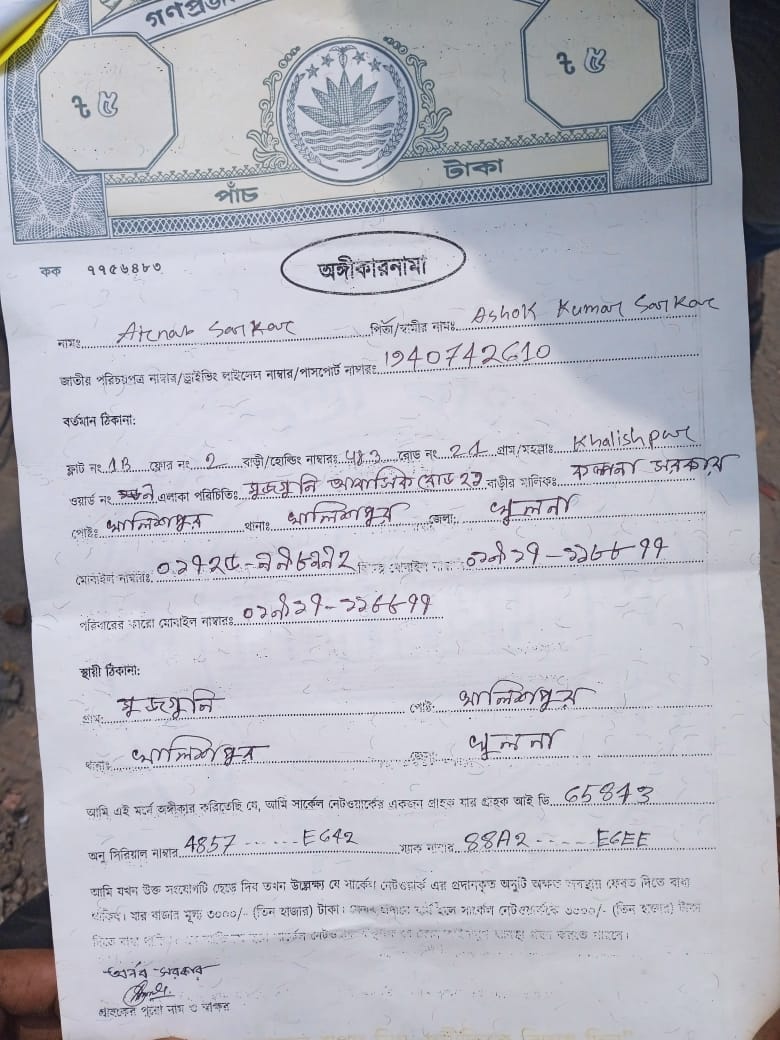 গণপ্রজা
৳ ৫ ৳ ৫
পাঁচ টাকা
কক ৭৭৫৬৪৮৩
অঙ্গীকারনামা
নামঃ Arnab Sarkar পিতা/স্বামীর নামঃ Ashok Kumar Sarkar
জাতীয় পরিচয়পত্র নাম্বার/ড্রাইভিং লাইসেন্স নাম্বার/পাসপোর্ট নাম্বারঃ 1940742610
বর্তমান ঠিকানা:
ফ্লাট নং 1B ফ্লোর নং 2 বাড়ী/হোল্ডিং নাম্বারঃ 483 রোড নং 21 গ্রাম/মহল্লাঃ Khalishpur
ওয়ার্ড নং এলাকা পরিচিতিঃ মুজগুনি আবাসিক রোড ২১ বাড়ীর মালিকঃ কল্পনা সরকার
পোষ্টঃ খালিশপুর থানাঃ খালিশপুর জেলা: খুলনা
মোবাইল নাম্বারঃ
পরিবারের কারো মোবাইল নাম্বারঃ
স্থায়ী ঠিকানা:
গ্রাম: মুজগুনি পোষ্ট: খালিশপুর
থানাঃ খালিশপুর জেলা: খুলনা
আমি এই মর্মে অঙ্গীকার করিতেছি যে, আমি সার্কেল নেটওয়ার্কের একজন গ্রাহক যার গ্রাহক আই ডি 65843
অনু সিরিয়াল নাম্বার 4857 ...... EG42 ম্যাক নাম্বার 88A2 ...... EGEE
আমি যখন উক্ত সংযোগটি ছেড়ে দিব তখন উল্লেখ্য যে সার্কেল নেটওয়ার্ক এর প্রদানকৃত অনুটি অক্ষত অবস্থায় ফেরত দিতে বাধ্য
থাকিব। যার বাজার মূল্য ৩০০০/- (তিন হাজার) টাকা। সার্কেল নেটওয়ার্ককে ৩০০০/- (তিন হাজার) টাকা
দিতে বাধ্য সার্কেল গ্রহণ করতে পারবে।
অর্নব সরকার
গ্রাহকের পুরো নাম ও স্বাক্ষর